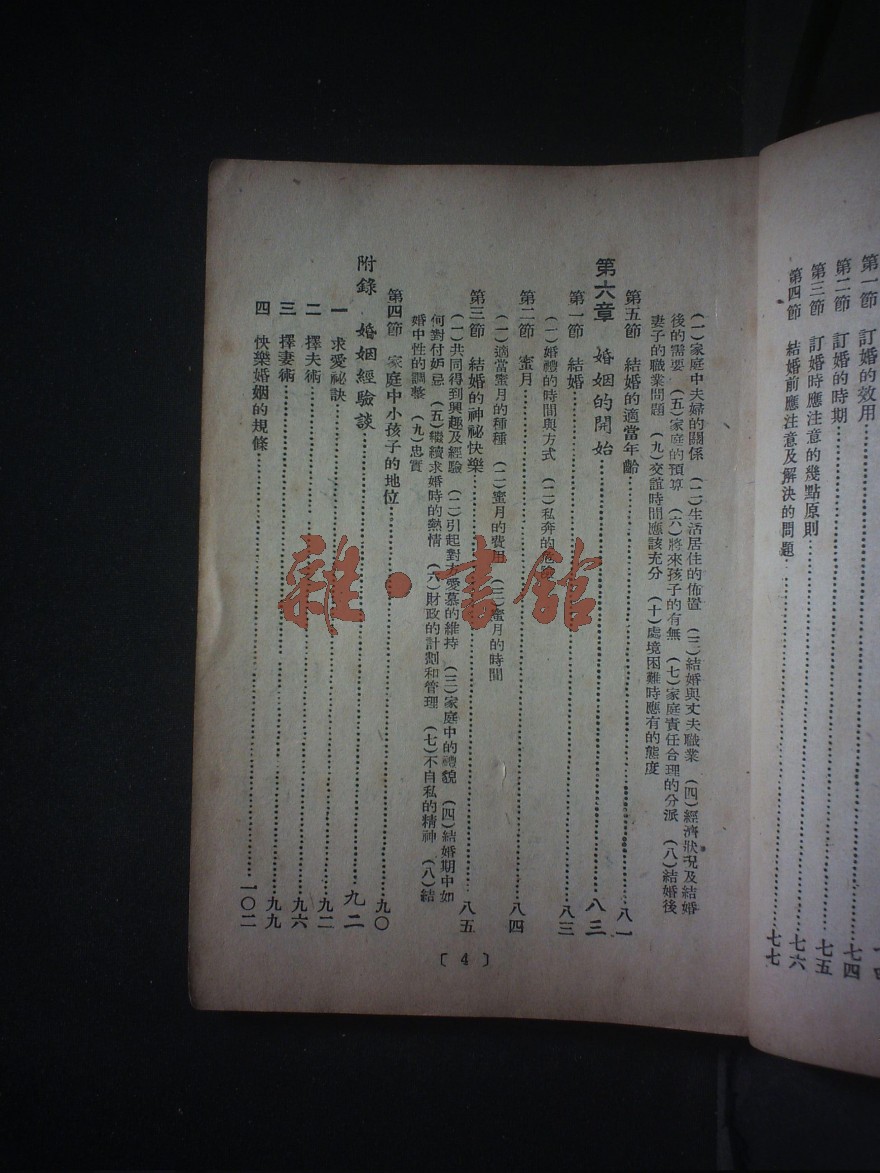 第一節　訂婚的效用
第二節　訂婚的時期……七四
第三節　訂婚時應注意的幾點原則……七五
第四節　結婚前應注意及解決的問題……七六
七七
(一)家庭中夫婦的關係　(二)生活居住的佈置　(三)結婚與丈夫職業　(四)經濟狀況及結婚
後的需要　(五)家庭的預算　(六)將來孩子的有無　(七)家庭責任合理的分派　(八)結婚後
妻子的職業問題　(九)交誼時間應該充分　(十)處境困難時應有的態度
第五節　結婚的適當年齡……八一
第六章　婚姻的開始……八三
第一節　結婚……八三
(一)婚禮的時間與方式　(二)私奔的
第二節　蜜月……八四
(一)適當蜜月的種種　(二)蜜月的費用　(三)蜜月的時間
第三節　結婚的神祕快樂……八五
(一)共同得到興趣及經驗　(二)引起對方愛慕的維持　(三)家庭中的禮貌　(四)結婚期中如
何對付妒忌　(五)繼續求婚時的熱情　(六)財政的計劃和管理　(七)不自私的精神　(八)結
婚中性的調整　(九)忠實
第四節　家庭中小孩子的地位……九〇
附錄　婚姻經驗談……九二
一　求愛祕訣……九二
二　擇夫術……九六
三　擇妻術……九九
四　快樂婚姻的規條……一〇二
〔4〕
雜·書館